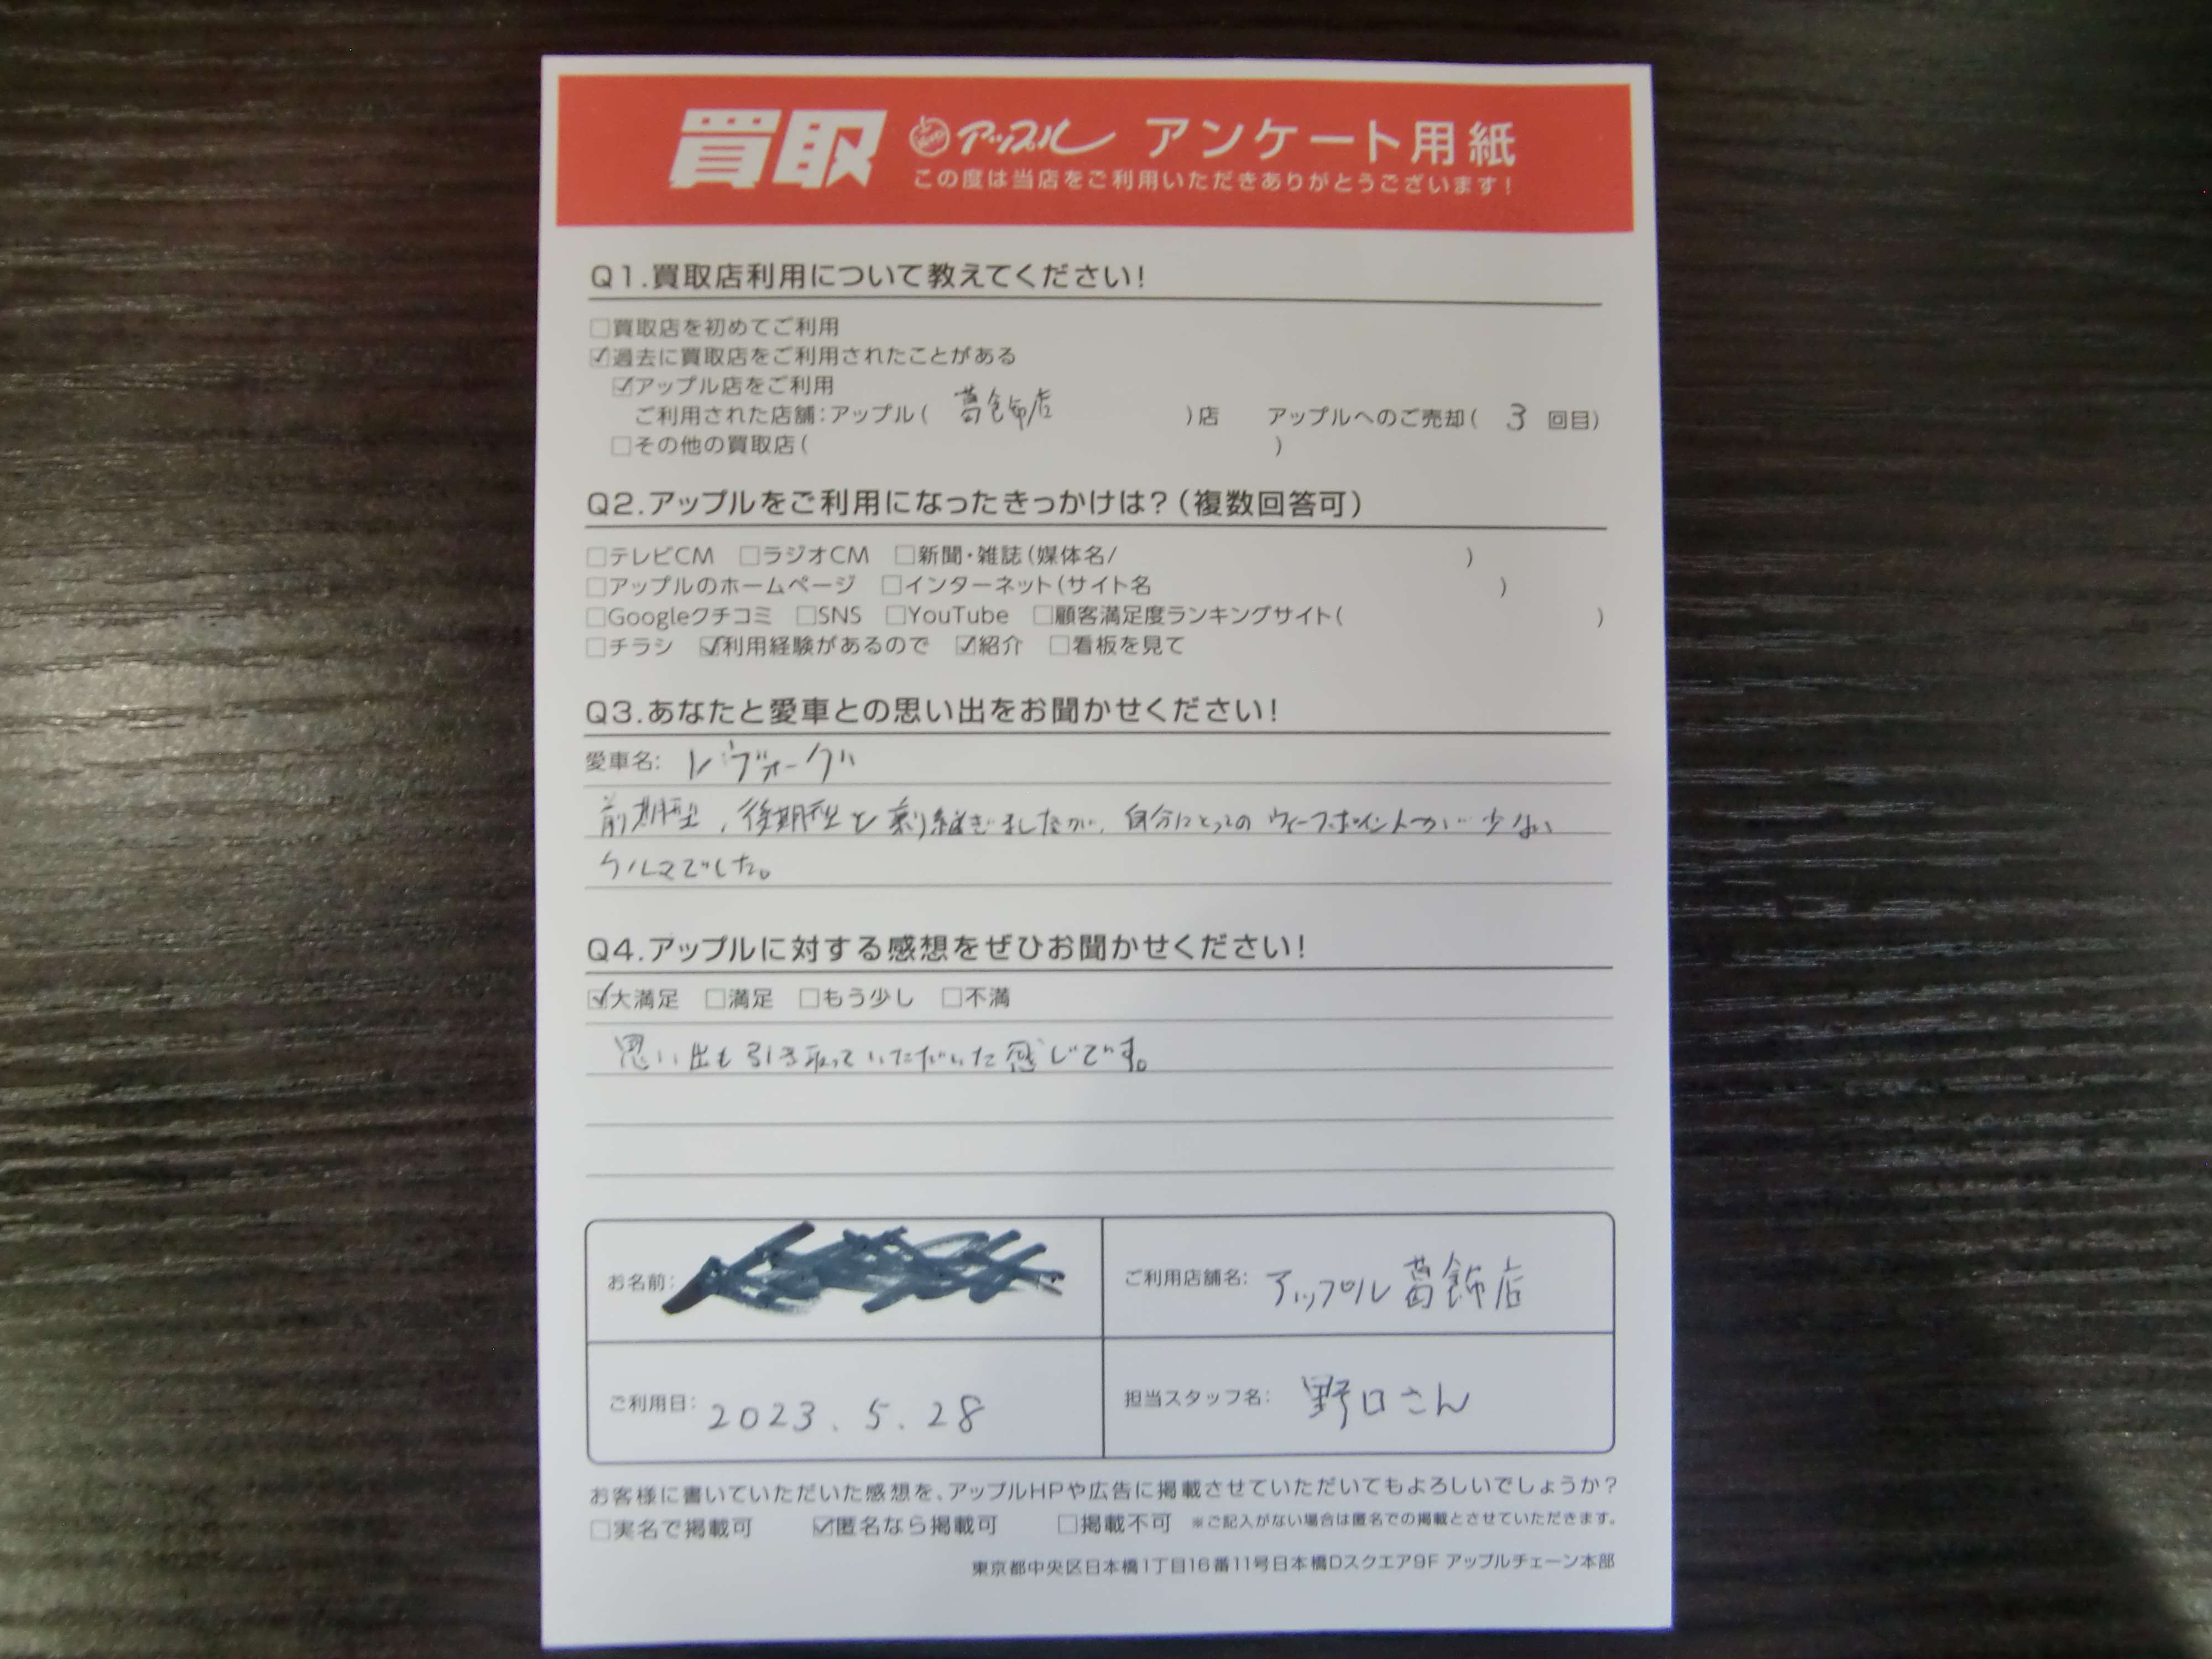 買取 アップル アンケート用紙
この度は当店をご利用いただきありがとうございます!
Q1.買取店利用について教えてください!
□買取店を初めてご利用
☑過去に買取店をご利用されたことがある
☑アップル店をご利用
ご利用された店舗:アップル( 葛飾店 )店 アップルへのご売却( 3 回目)
□その他の買取店( )
Q2.アップルをご利用になったきっかけは?(複数回答可)
□テレビCM □ラジオCM □新聞・雑誌(媒体名/ )
□アップルのホームページ □インターネット(サイト名 )
□Googleクチコミ □SNS □YouTube □顧客満足度ランキングサイト( )
□チラシ ☑利用経験があるので ☑紹介 □看板を見て
Q3.あなたと愛車との思い出をお聞かせください!
愛車名: レヴォーグ
前期型、後期型と乗り継ぎましたが、自分にとってのウィークポイントが少ない
クルマでした。
Q4.アップルに対する感想をぜひお聞かせください!
☑大満足 □満足 □もう少し □不満
思い出も引き取っていただいた感じです。
お名前:
ご利用店舗名: アップル葛飾店
ご利用日: 2023.5.28
担当スタッフ名: 野口さん
お客様に書いていただいた感想を、アップルHPや広告に掲載させていただいてもよろしいでしょうか?
□実名で掲載可 ☑匿名なら掲載可 □掲載不可 ※ご記入がない場合は匿名での掲載とさせていただきます。
東京都中央区日本橋1丁目16番11号日本橋Dスクエア9F アップルチェーン本部